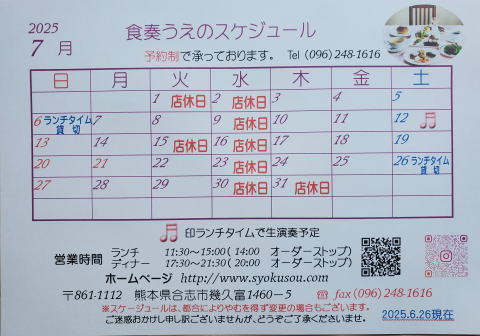 2025
7月
食奏うえのスケジュール
予約制で承っております。 Tel (096) 248-1616
日 月 火 水 木 金 土
1 店休日 2 店休日 3 4 5
6 ランチタイム貸切 7 8 9 店休日 10 11 12
13 14 15 店休日 16 店休日 17 18 19
20 21 22 23 店休日 24 25 26 ランチタイム貸切
27 28 29 30 店休日 31 店休日
印ランチタイムで生演奏予定
営業時間 ランチ 11:30~15:00( 14:00 オーダーストップ)
ディナー 17:30~21:30( 20:00 オーダーストップ)
ホームページ http://www.syokusou.com
〒861-1112 熊本県合志市幾久富1460-5 ☎ fax (096) 248-1616
※スケジュールは、都合によりやむを得ず変更の場合もございます。
ご迷惑おかけし申し訳ございませんが、どうぞご了承くださいませ。
2025.6.26現在